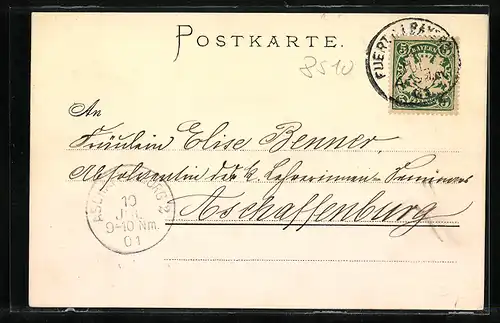 POSTKARTE.
8510
FUERTH I. BAYERN
BAYERN
5 5
An
Fräulein Elise Benner,
Absolventin des k. Lehrerinnen-Seminars
Aschaffenburg
ASCHAFFENBURG 2
10
JUL
9-10 Nm.
01